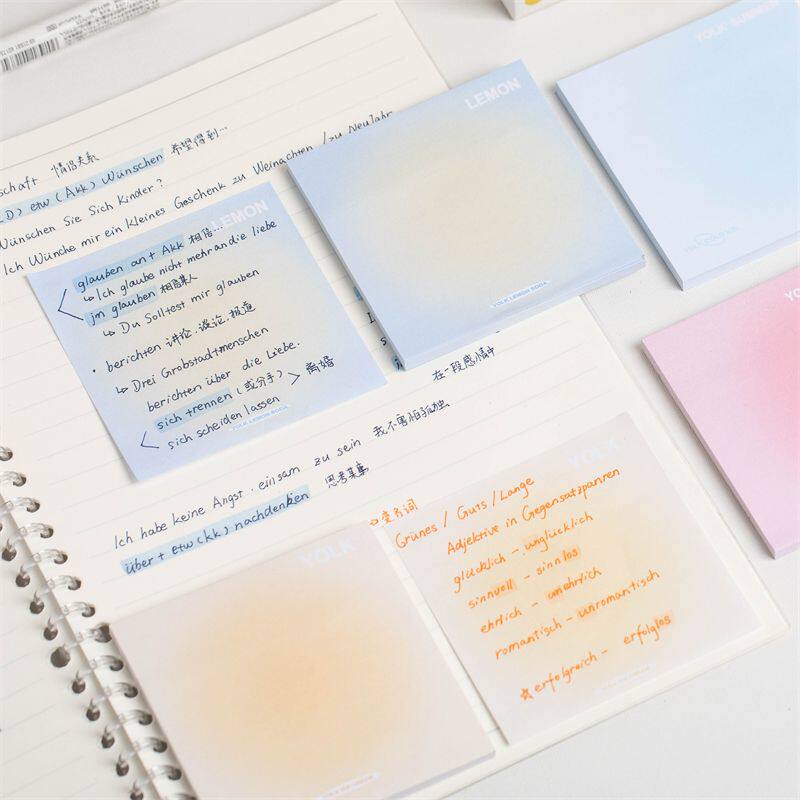 schaft 情侣关系
D) etw (Akk) Wünschen 希望得到…
Wünschen Sie Sich Kinder?
Ich Wünche mir ein kleines Geschenk zu Weinachten / zu Neujahr
LEMON
glauben an + Akk 相信…
↳ Ich glaube nicht mehr an die liebe
jm glauben 相信某人
↳ Du Solltest mir glauben
• berichten 讲论.谈论.报道
↳ Drei Grobstadtmenschen
berichten über die Liebe.
sich trennen (或分手) > 离婚
sich scheiden lassen
YOLK LEMON SODA
LEMON
YOLK LEMON SODA
YOLK SUMMER
YO
在一段感情中
Ich habe keine Angst. einsam zu sein 我不害怕孤独
über + etw (kk) nachdenken 思考某事
YOLK
YOLK
变名词
Grünes / Guts / Lange
Adjektive in Gegensatzpanren
glücklich - unglücklich
sinnvoll - sinnlos
ehrlich - unehrlich
romantisch - unromantisch
☆ erfolgreich - erfolglos